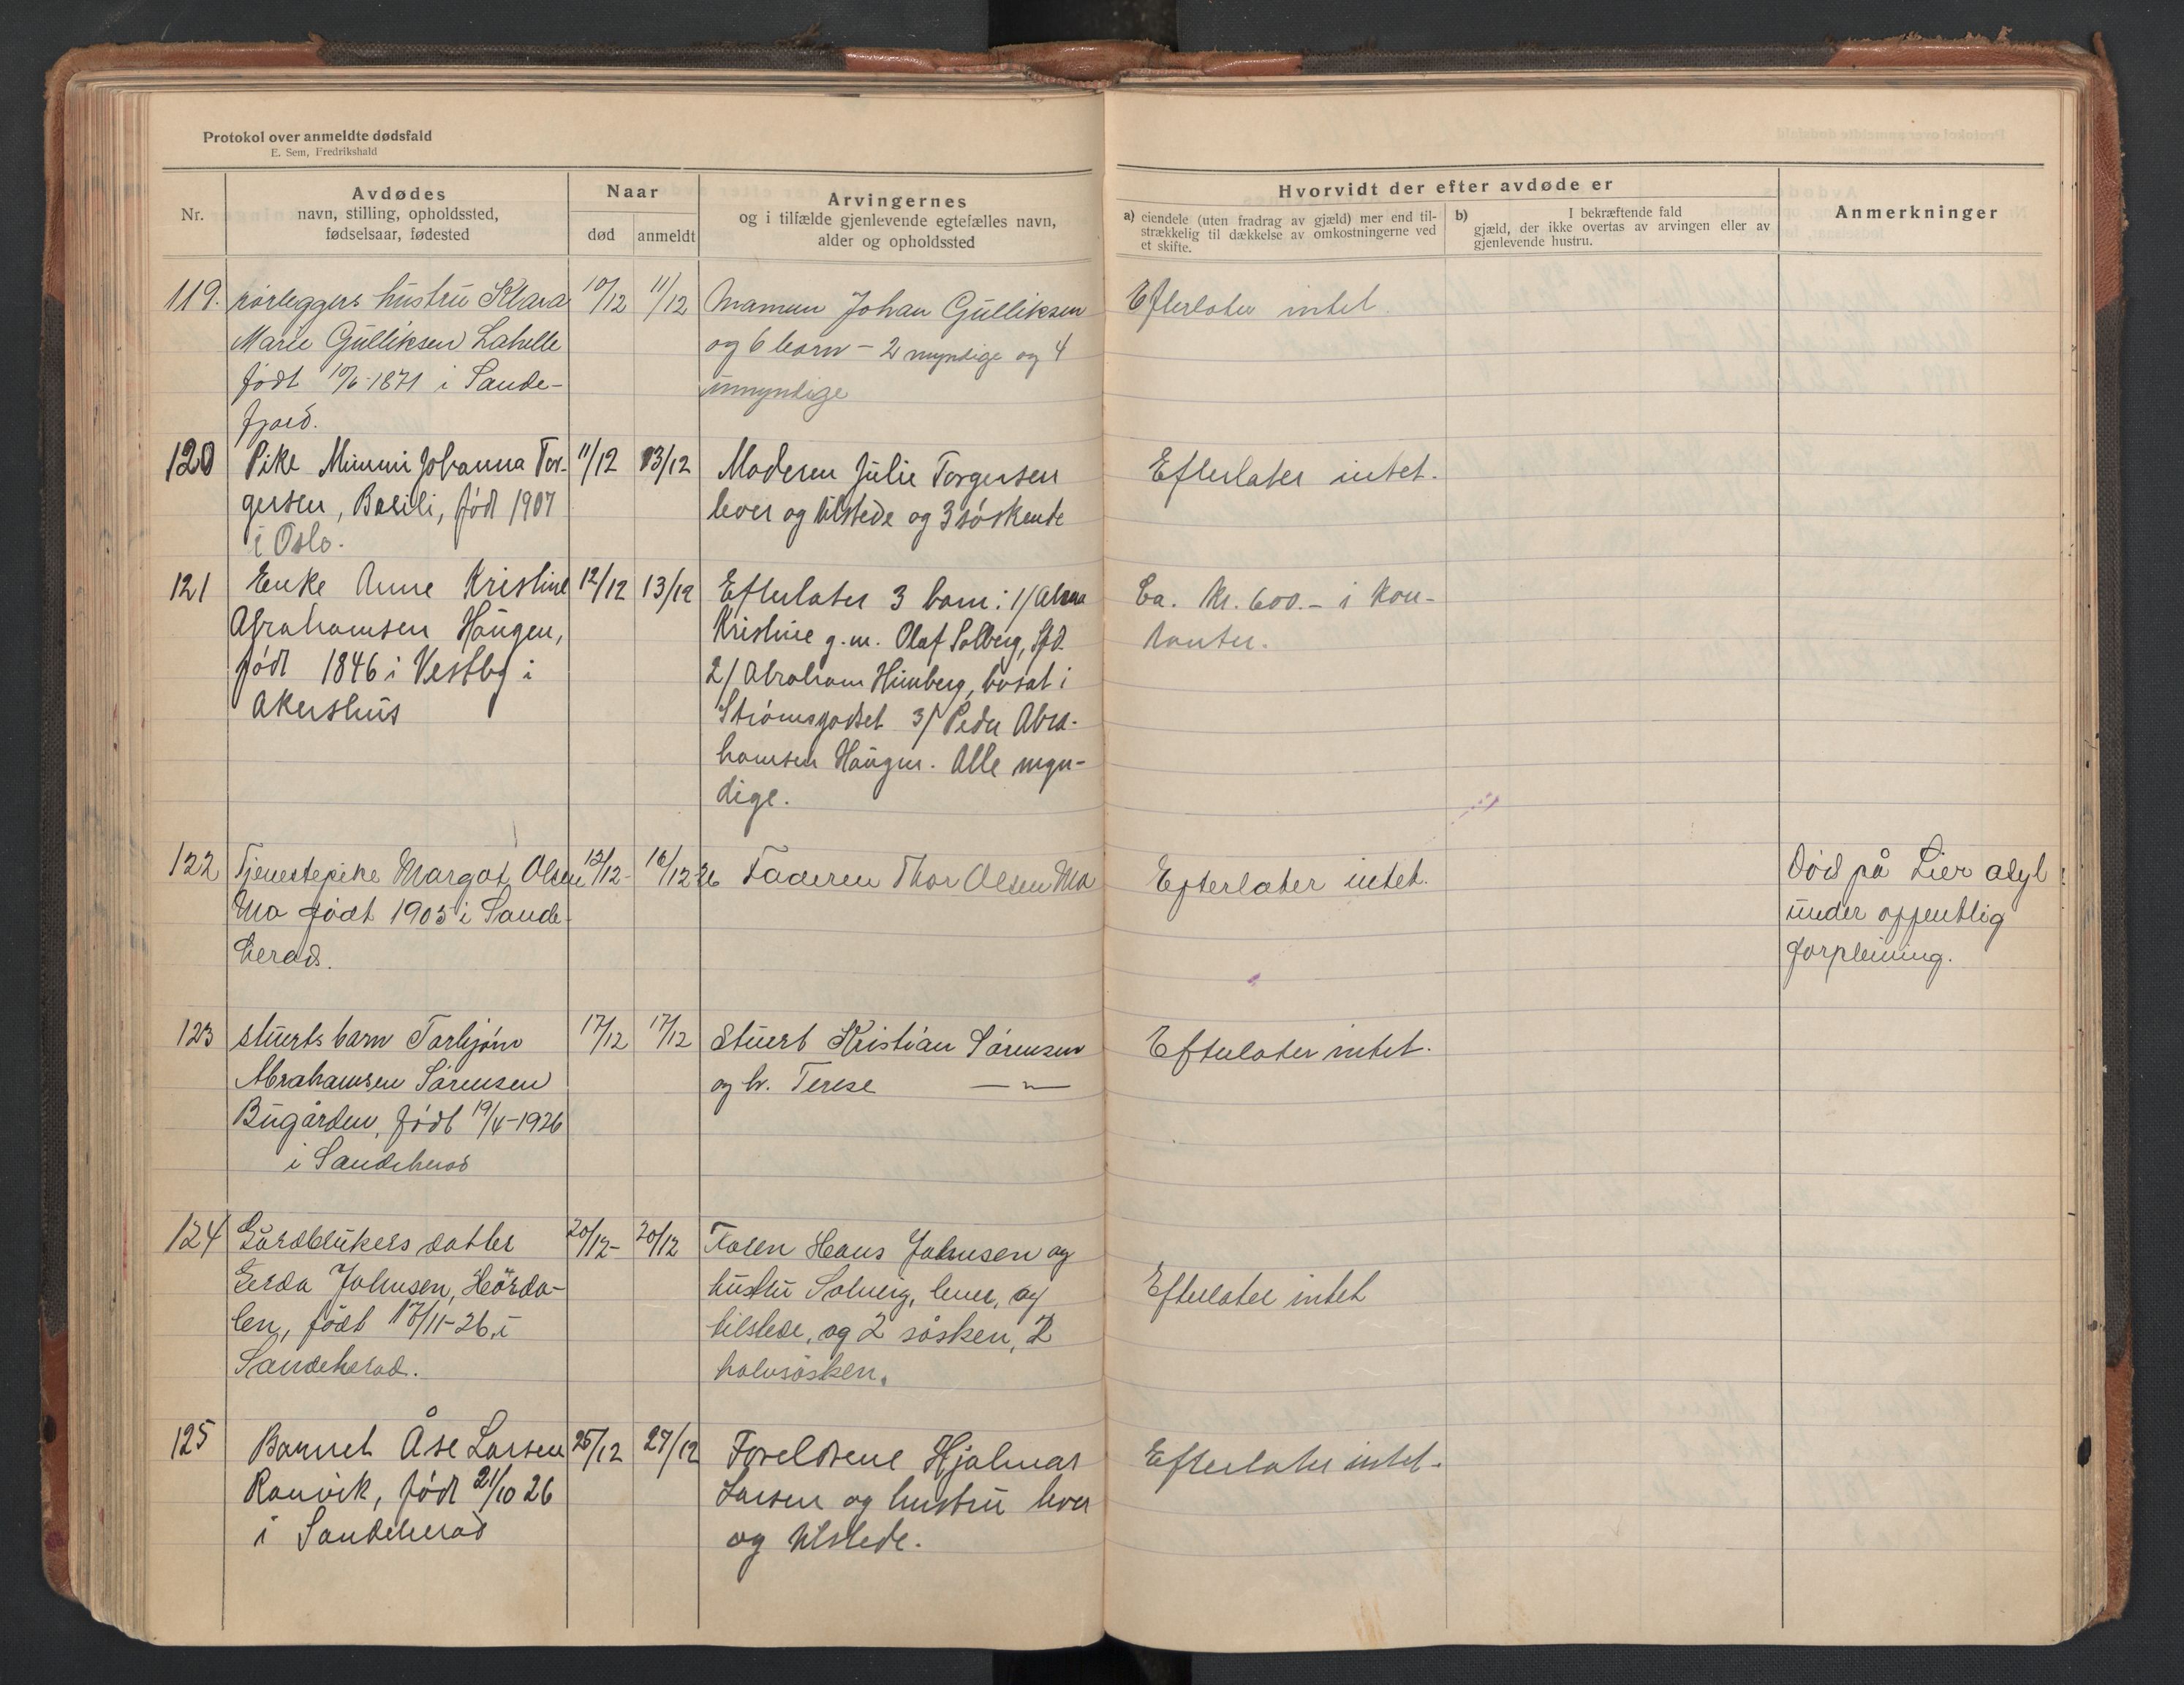 Protokol over anmeldte dødsfald
E. Sem, Fredrikshald
Nr.
Avdødes
navn, stilling, opholdssted,
fødselsaar, fødested
Naar
død
anmeldt
Arvingernes
og i tilfælde gjenlevende egtefælles navn,
alder og opholdssted
Hvorvidt der efter avdøde er
a) eiendele (uten fradrag av gjæld) mer end til-
strækkelig til dækkelse av omkostningerne ved
et skifte.
b) I bekræftende fald
gjæld, der ikke overtas av arvingen eller av
gjenlevende hustru.
Anmerkninger
119. rørleggers hustru Klara
Marie Gulliksen Lahelle
født 10/6-1871 i Sande-
fjord.
10/12
11/12
Mannen Johan Gulliksen
og 6 barn - 2 myndige og 4
umyndige
Efterlater intet.
120 Pike Mimmi Johanna Tor-
gersen, Besili, født 1907
i Oslo.
11/12
13/12
Moderen Julie Torgersen
lever og tilstede og 3 søskende
Efterlater intet.
121 Enke Anne Kristine
Abrahamsen Haugen,
født 1846 i Vestby i
Akershus
12/12
13/12
Efterlater 3 barn: 1/ Alma
Kristine g.m. Olaf Solberg, Sfd.
2/ Abraham Himberg, bosat i
Strømsgodset 3/ Peder Abra-
hamsen Haugen. Alle myn-
dige.
Ca. Kr. 600.- i kon-
tanter.
122 Tjenestepike Margot Olsen
Mo født 1905 i Sande-
herad.
12/12-
16/12-26
Faderen Thor Olsen Mo
Efterlater intet.
Død på Lier asyl
under offentlig
forpleining.
123 stuerts barn Torbjørn
Abrahamsen Sørensen
Bugården, født 19/4-1926
i Sandeherad
17/12
17/12
Stuert Kristian Sørensen
og h. Terese — " —
Efterlater intet.
124 Gårdbrukers datter
Gerda Johnsen, Hørda-
len, født 17/11-26, i
Sandeherad.
20/12-
20/12
Faren Hans Johnsen og
hustru Solveig, lever, og
tilstede, og 2 søsken, 2
halvsøsken.
Efterlater intet
125 Barnet Åse Larsen
Ranvik, født 21/10 26
i Sandeherad
25/12
27/12
Foreldrene Hjalmar
Larsen og hustru lever
og tilstede.
Efterlater intet.